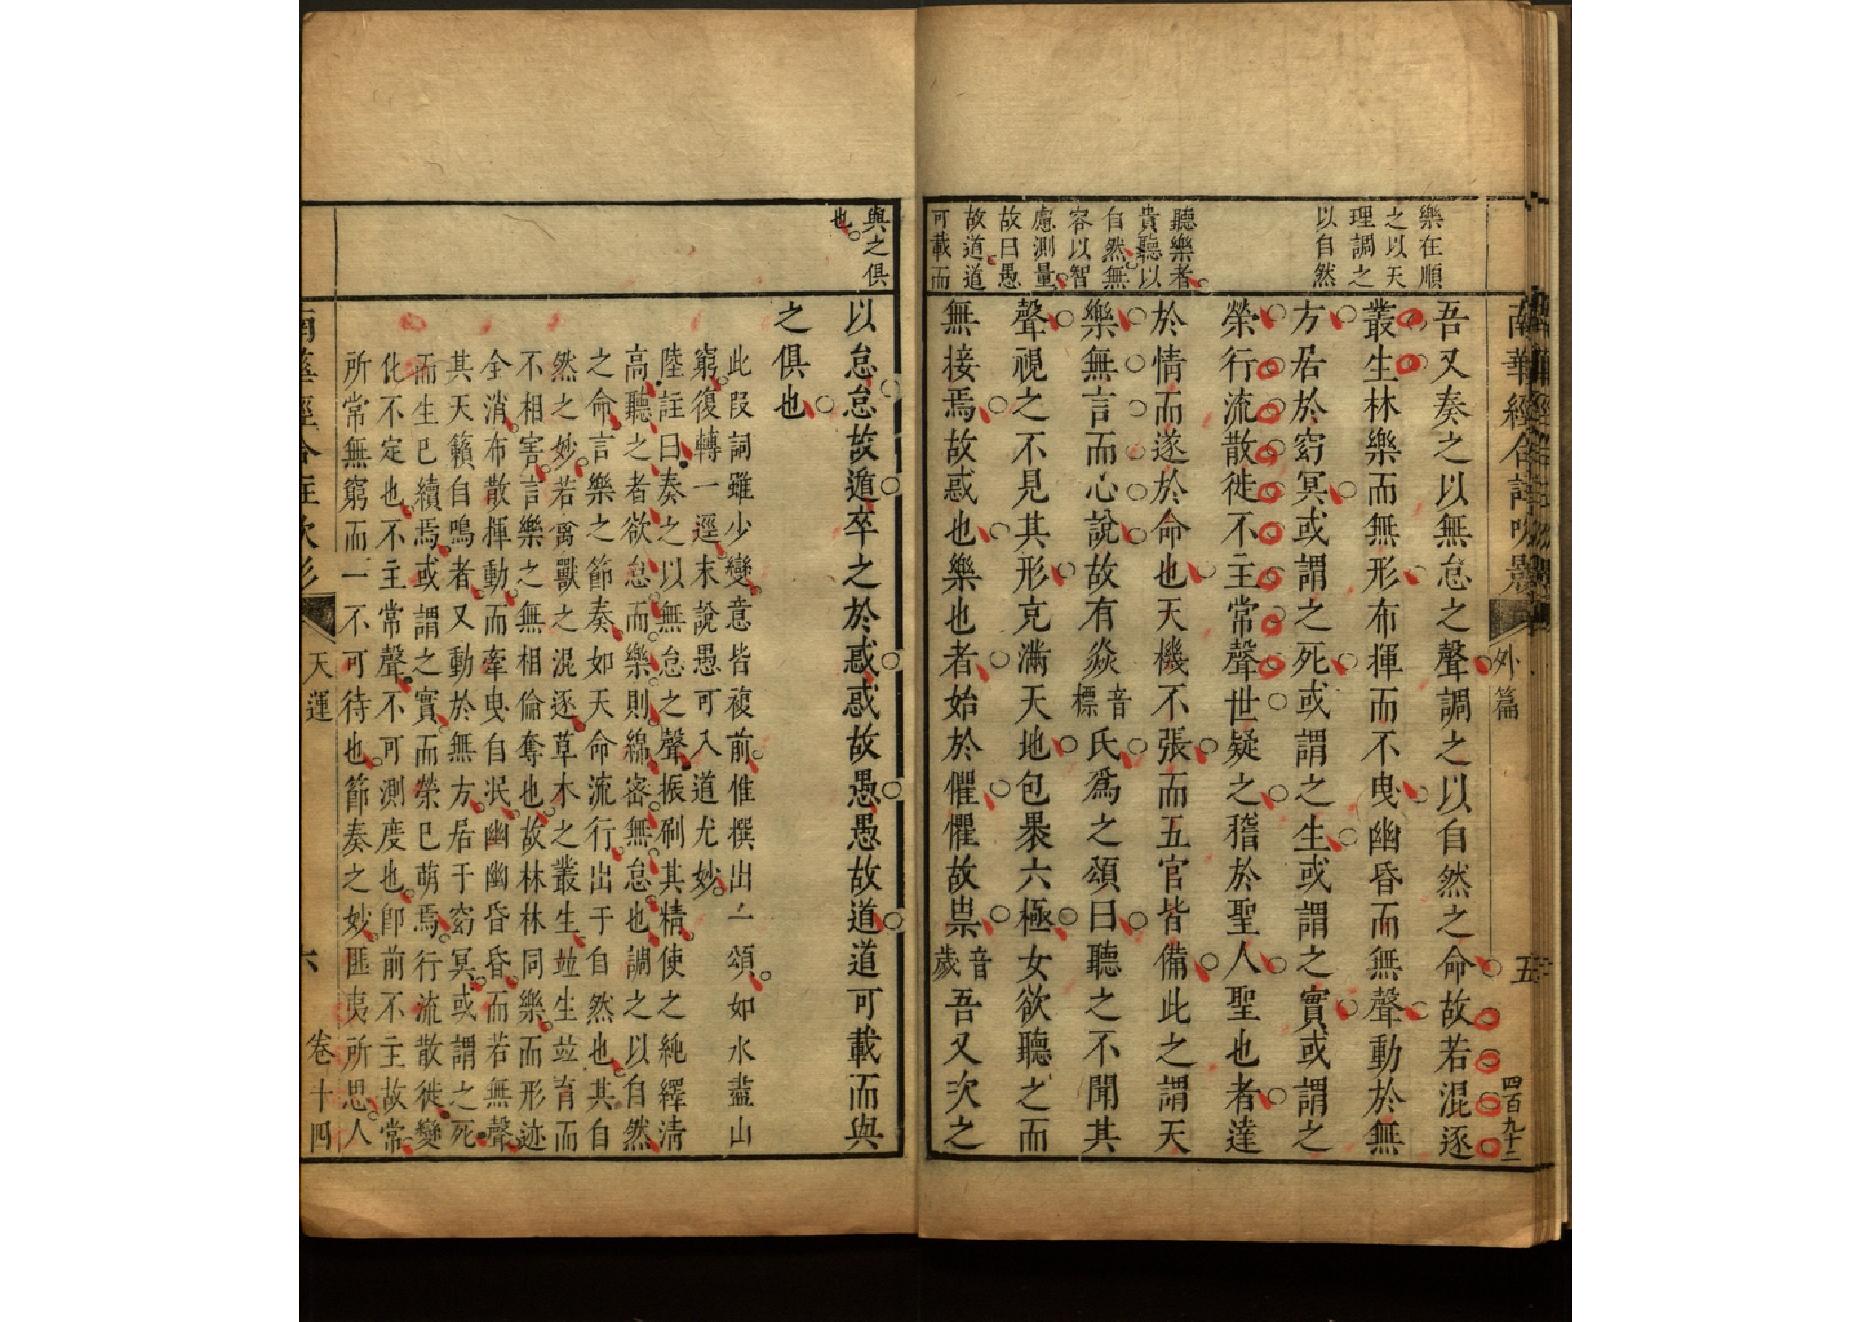 樂在順
之以天
理調之
以自然
聽樂者
貴聽以
自然無
容以智
慮測量
故曰愚
故道道
可載而
外篇
五
四百九十二
吾又奏之以無怠之聲調之以自然之命故若混逐
叢生林樂而無形布揮而不曳幽昏而無聲動於無
方居於窈冥或謂之死或謂之生或謂之實或謂之
榮行流散徙不主常聲世疑之稽於聖人聖也者達
於情而遂於命也天機不張而五官皆備此之謂天
樂無言而心說故有焱音標氏爲之頌曰聽之不聞其
聲視之不見其形充滿天地包裹六極女欲聽之而
無接焉故惑也樂也者始於懼懼故祟音歲吾又次之
與之俱
也
以怠怠故遁卒之於惑惑故愚愚故道道可載而與
之俱也
此叚詞雖少變意皆複前惟撰出一頌如水盡山
窮復轉一逕末說愚可入道尤妙
陸註曰奏之以無怠之聲振刷其精使之純繹清
高聽之者欲怠而樂則綿密無怠也調之以自然
之命言樂之節奏如天命流行出于自然也其自
然之妙若禽獸之混逐草木之叢生並生並育而
不相害言樂之無相倫奪也故林林同樂而形迹
全消布散揮動而牽曳自泯幽幽昏昏而若無聲
其天籟自鳴者又動於無方居于窈冥或謂之死
而生已續焉或謂之實而榮已萌焉行流散徙變
化不定也不主常聲不可測度也卽前不主故常
所常無窮而一不可待也節奏之妙匪夷所思人
天運
卷十四